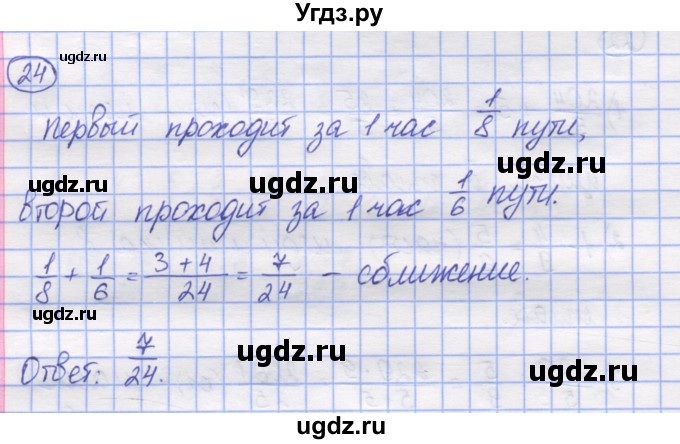 Угдз.ру
ugdz.ru ugdz.ru ugdz.ru
24
Первый проходит за 1 час 1/8 пути,
ugdz.ru ugdz.ru ugdz.ru
второй проходит за 1 час 1/6 пути.
1/8 + 1/6 = (3 + 4)/24 = 7/24 – сближение.
ugdz.ru ugdz.ru ugdz.ru
Ответ: 7/24.
ugdz.ru ugdz.ru
ugdz.ru